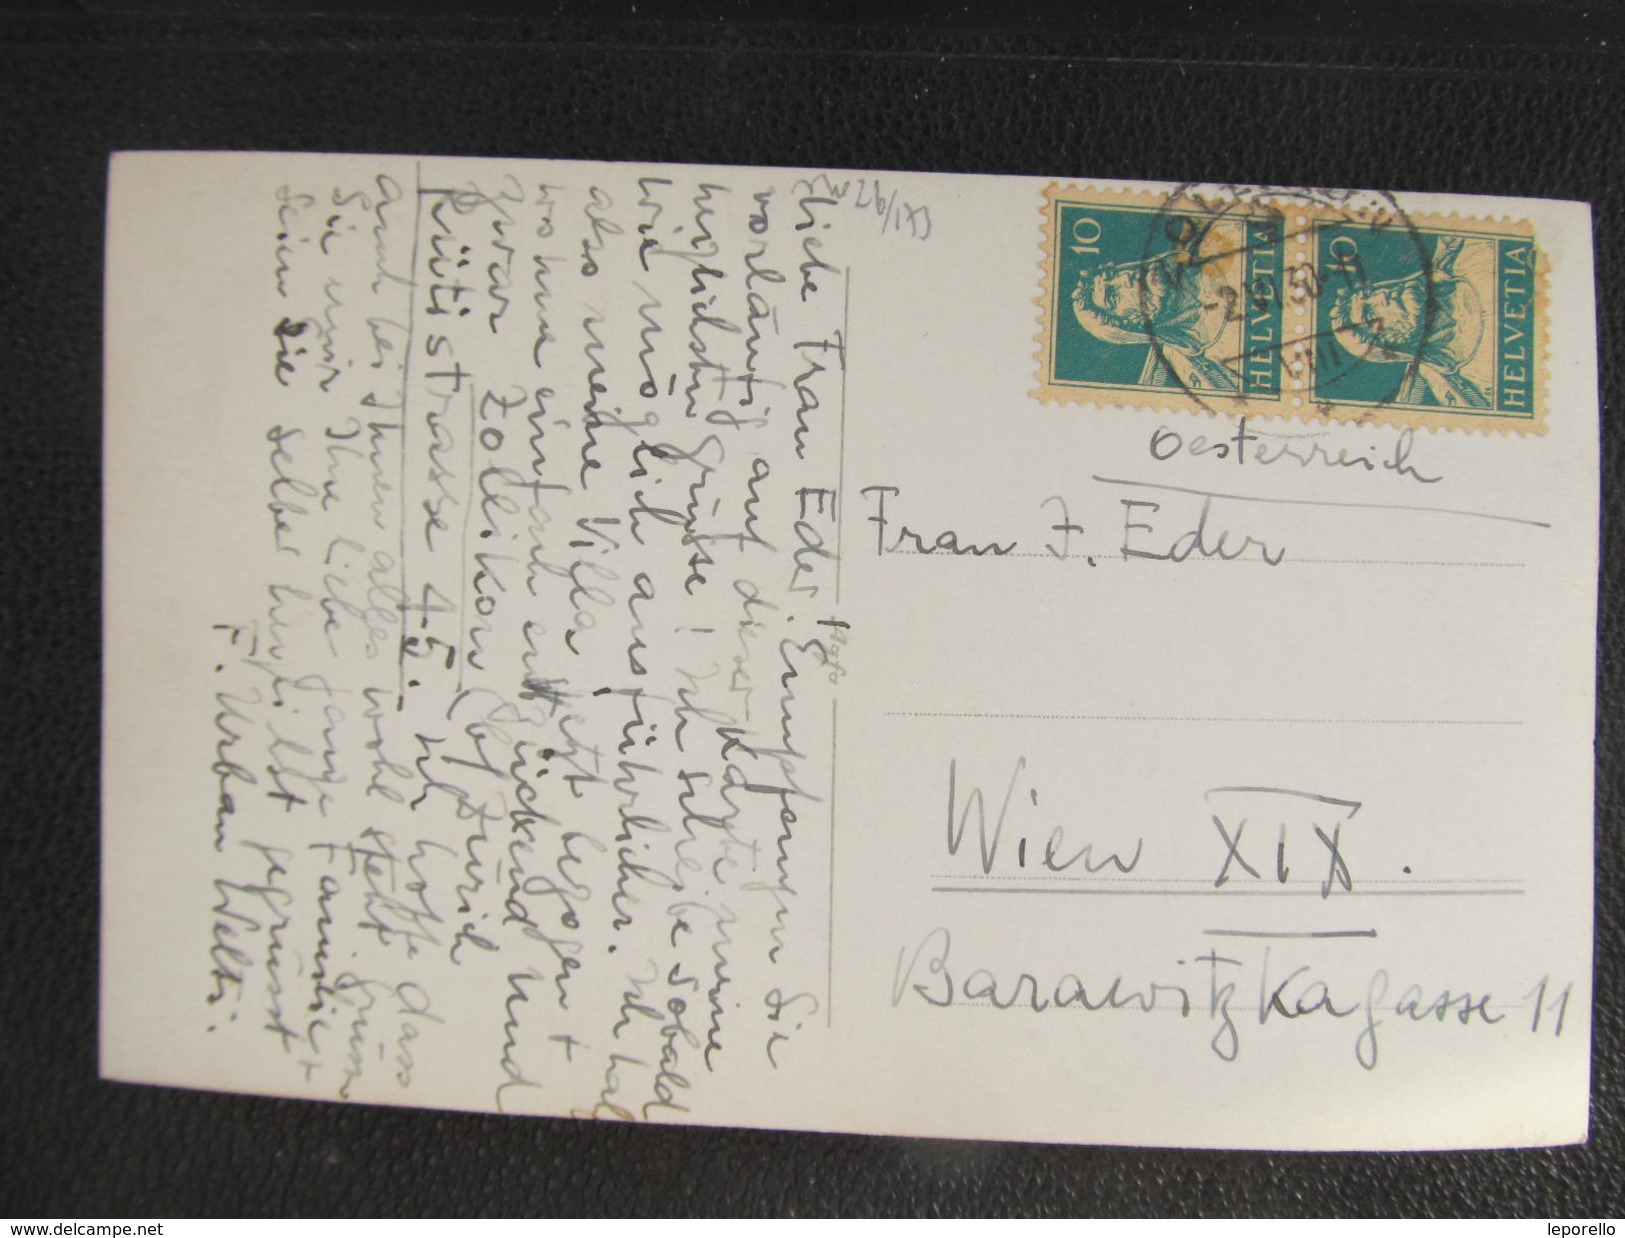 Liebe Frau Eder. Empfangen Sie
vorläufig auf dieser Karte meine
herzlichsten Grüsse! Ich schreibe sobald
wie möglich ausführlicher. Ich hab
also meine Villa jetzt bezogen +
wohne einfach entzückend und
zwar Zollikon (bf Zürich
Rütistrasse 45. Ich hoffe dass
auch bei Ihnen alles wohl steht. Grüsse
Sie mir Ihre liebe ganze Familie +
seien Sie selber herzlichst gegrüsst
F. Urban Welti.
Agfa
10
HELVETIA
10
HELVETIA
Oesterreich
Frau J. Eder
Wien XIX.
Barawitzkagasse 11
www.delcampe.net
leporello